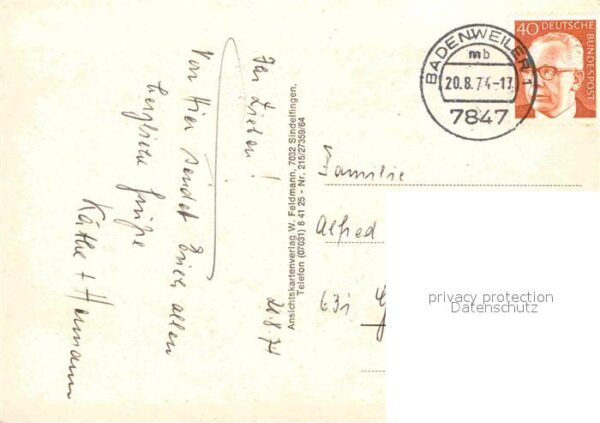 Ihr Lieben!
Von Hier sendet Euch allen
herzliche Grüße
Käthe + Hermann
20.8.74
Ansichtskartenverlag W. Feldmann, 7032 Sindelfingen,
Telefon (07031) 8 41 25 - Nr. 215/27359/64
BADENWEILER 1
mb
20.8.74-17
7847
40 DEUTSCHE
BUNDESPOST
Familie
Alfred
631
privacy protection
Datenschutz